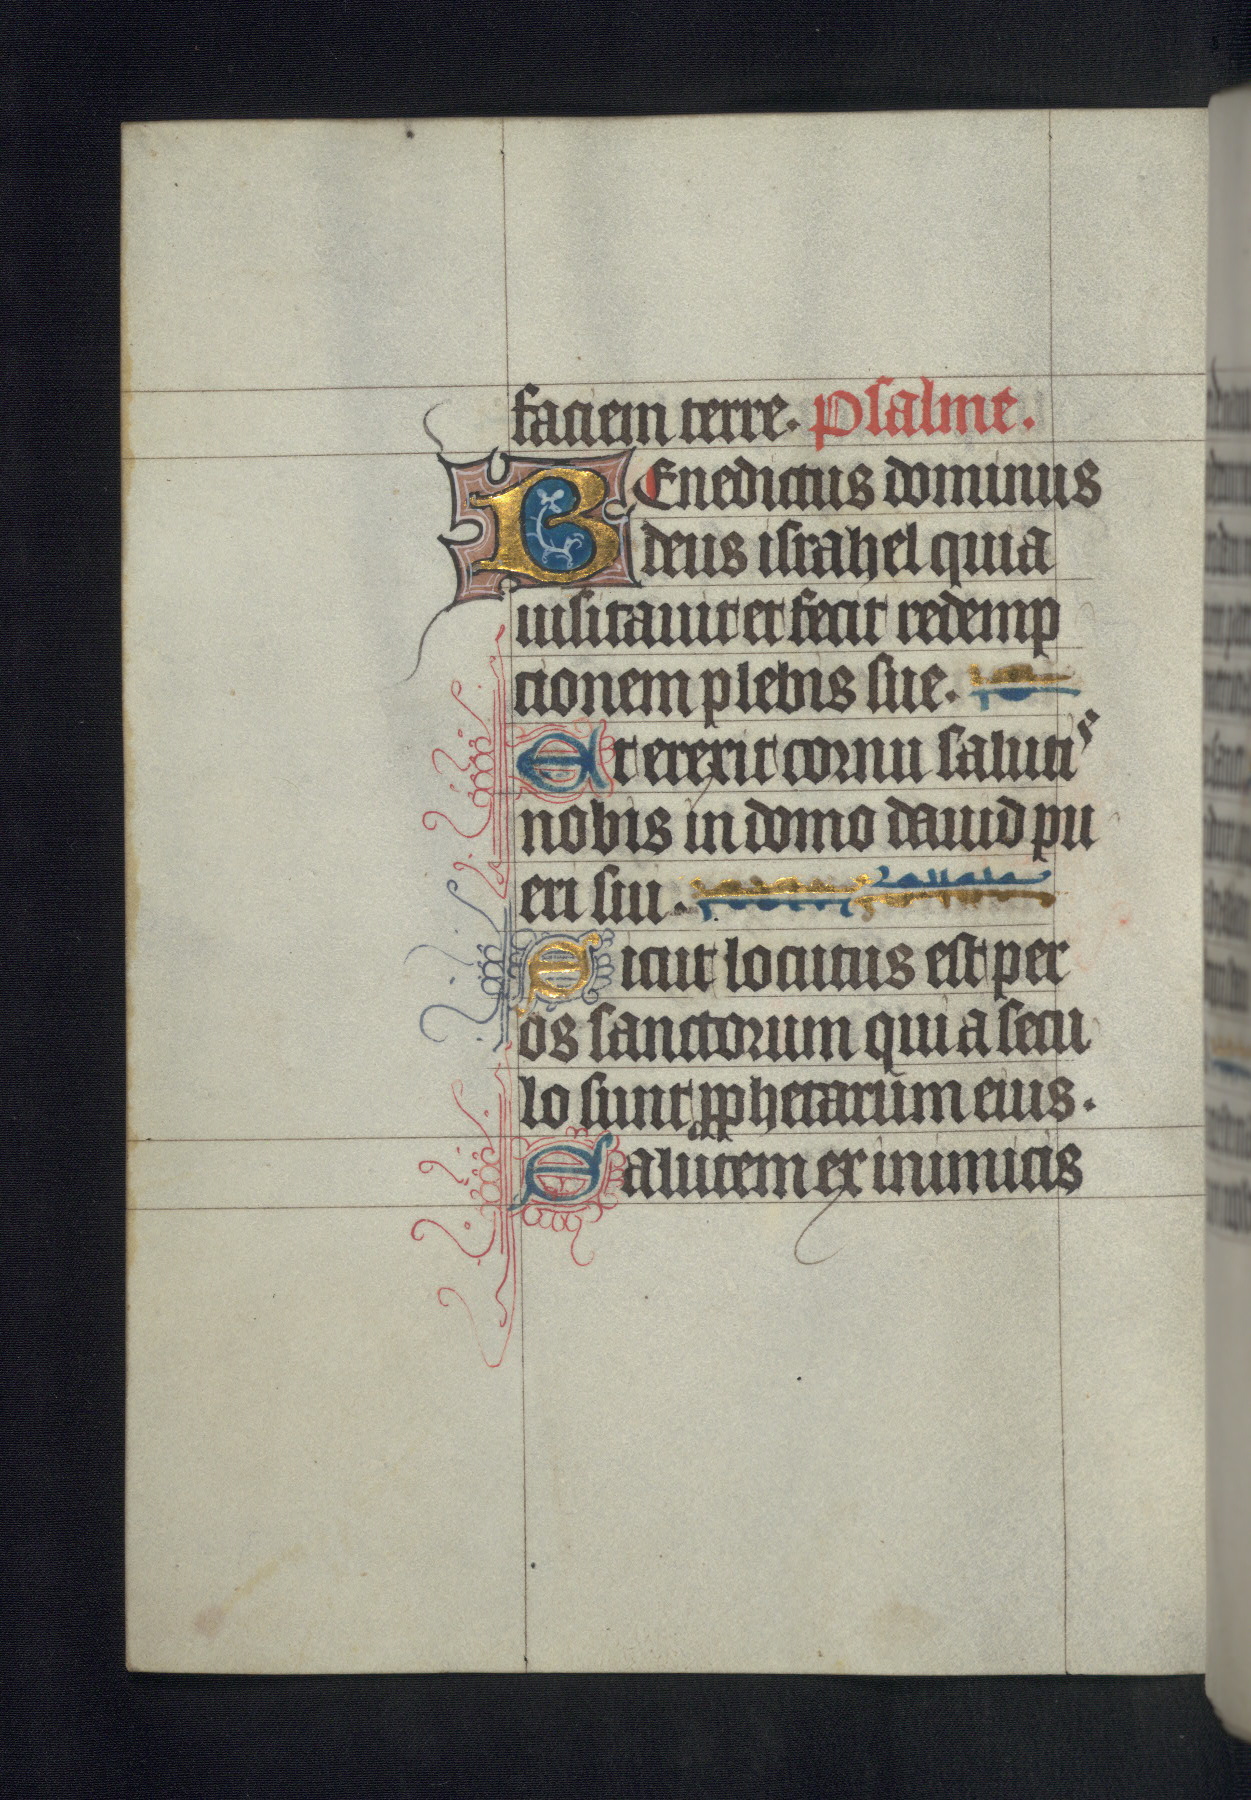 faciem terre. Psalme.
BEnedictus dominus
deus israhel quia
uisitauit et fecit redemp
cionem plebis sue.
Et erexit cornu salutis
nobis in domo dauid pu
eri sui.
Sicut locutus est per
os sanctorum qui a secu
lo sunt pphetarum eius.
Salutem ex inimicis